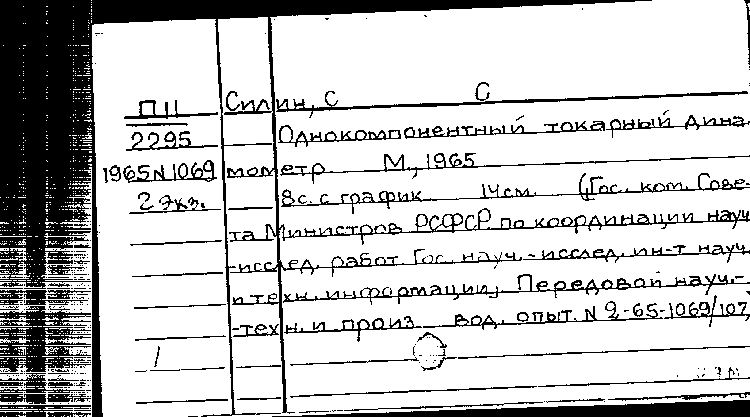 П11 Силин, С С
2295 Однокомпонентный токарный дина
1965 N 1069 мометр М., 1965
2 экз. 8 с. с график 14 см. (Гос. ком. Сове-
та Министров РСФСР по координации науч
-исслед. работ Гос. науч.-исслед. ин-т науч.
и техн. информации, Передовой науч.-
-техн. и произ вод. опыт. N 2-65-1069/107,